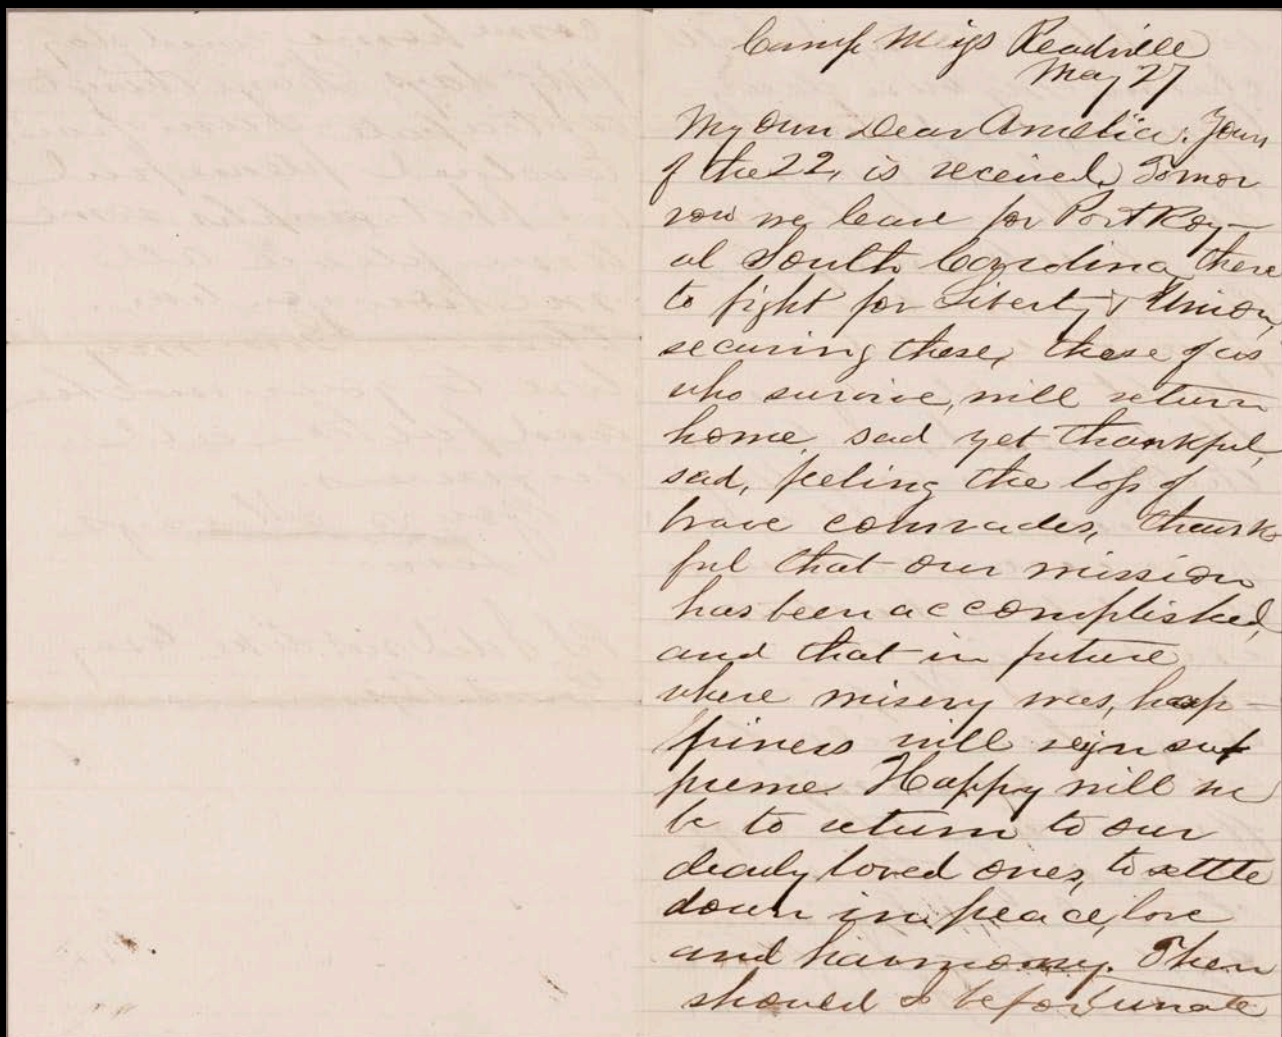 Camp Meigs Readville
May 27
My Own Dear Amelia. Your
of the 22, is received, Tomor
row we leave for Port Roy-
al South Carolina, there
to fight for Liberty & Union,
securing these, those of us
who survive, will return
home, sad yet thankful,
sad, feeling the loss of
brave comrades, thank
ful that our mission
has been accomplished,
and that in future
where misery was, hap-
piness will reign su
preme. Happy will we
be to return to our
dearly loved ones, to settle
down in peace, love
and harmony. Then
should I be fortunate